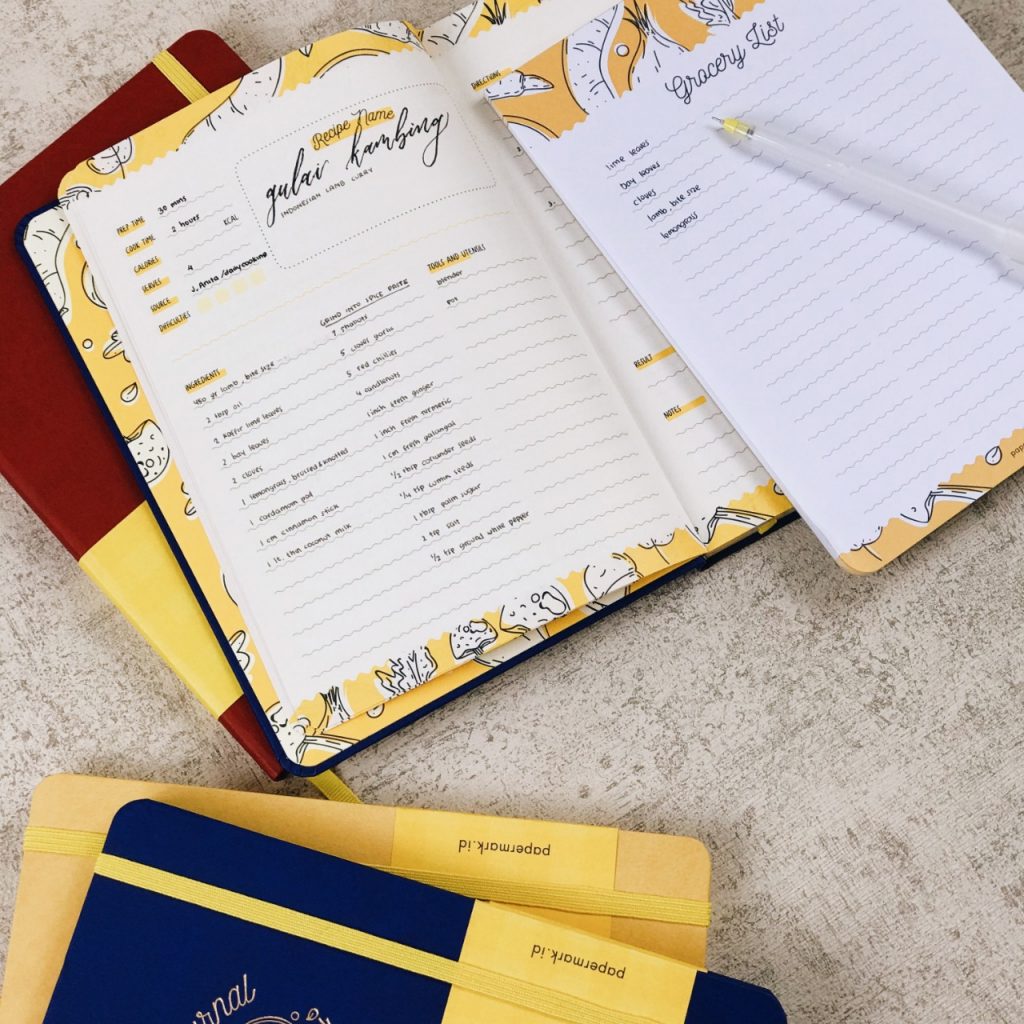 Recipe Name
gulai kambing
INDONESIAN LAMB CURRY
PREP TIME 30 mins
COOK TIME 2 hours
CALORIES KCAL
SERVES 4
SOURCE J. Anita/dailycooking
DIFFICULTIES
INGREDIENTS
450 gr lamb, bite size
2 tbsp oil
2 kaffir lime leaves
2 bay leaves
2 cloves
1 lemongrass, bruised & knotted
1 cardamom pod
1 cm cinnamon stick
1 lt. thin coconut milk
GRIND INTO SPICE PASTE
7 shallots
5 cloves garlic
5 red chillies
4 candlenuts
1 inch fresh ginger
1 inch fresh turmeric
1 cm fresh galangal
1/2 tbsp coriander seeds
1/4 tsp cumin seeds
1 tbsp palm sugar
2 tsp salt
1/2 tsp ground white pepper
TOOLS AND UTENSILS
blender
pot
DIRECTIONS
3.
RESULT
NOTES
Grocery List
lime leaves
bay leaves
cloves
lamb, bite size
lemongrass
papermark.id
papermark.id